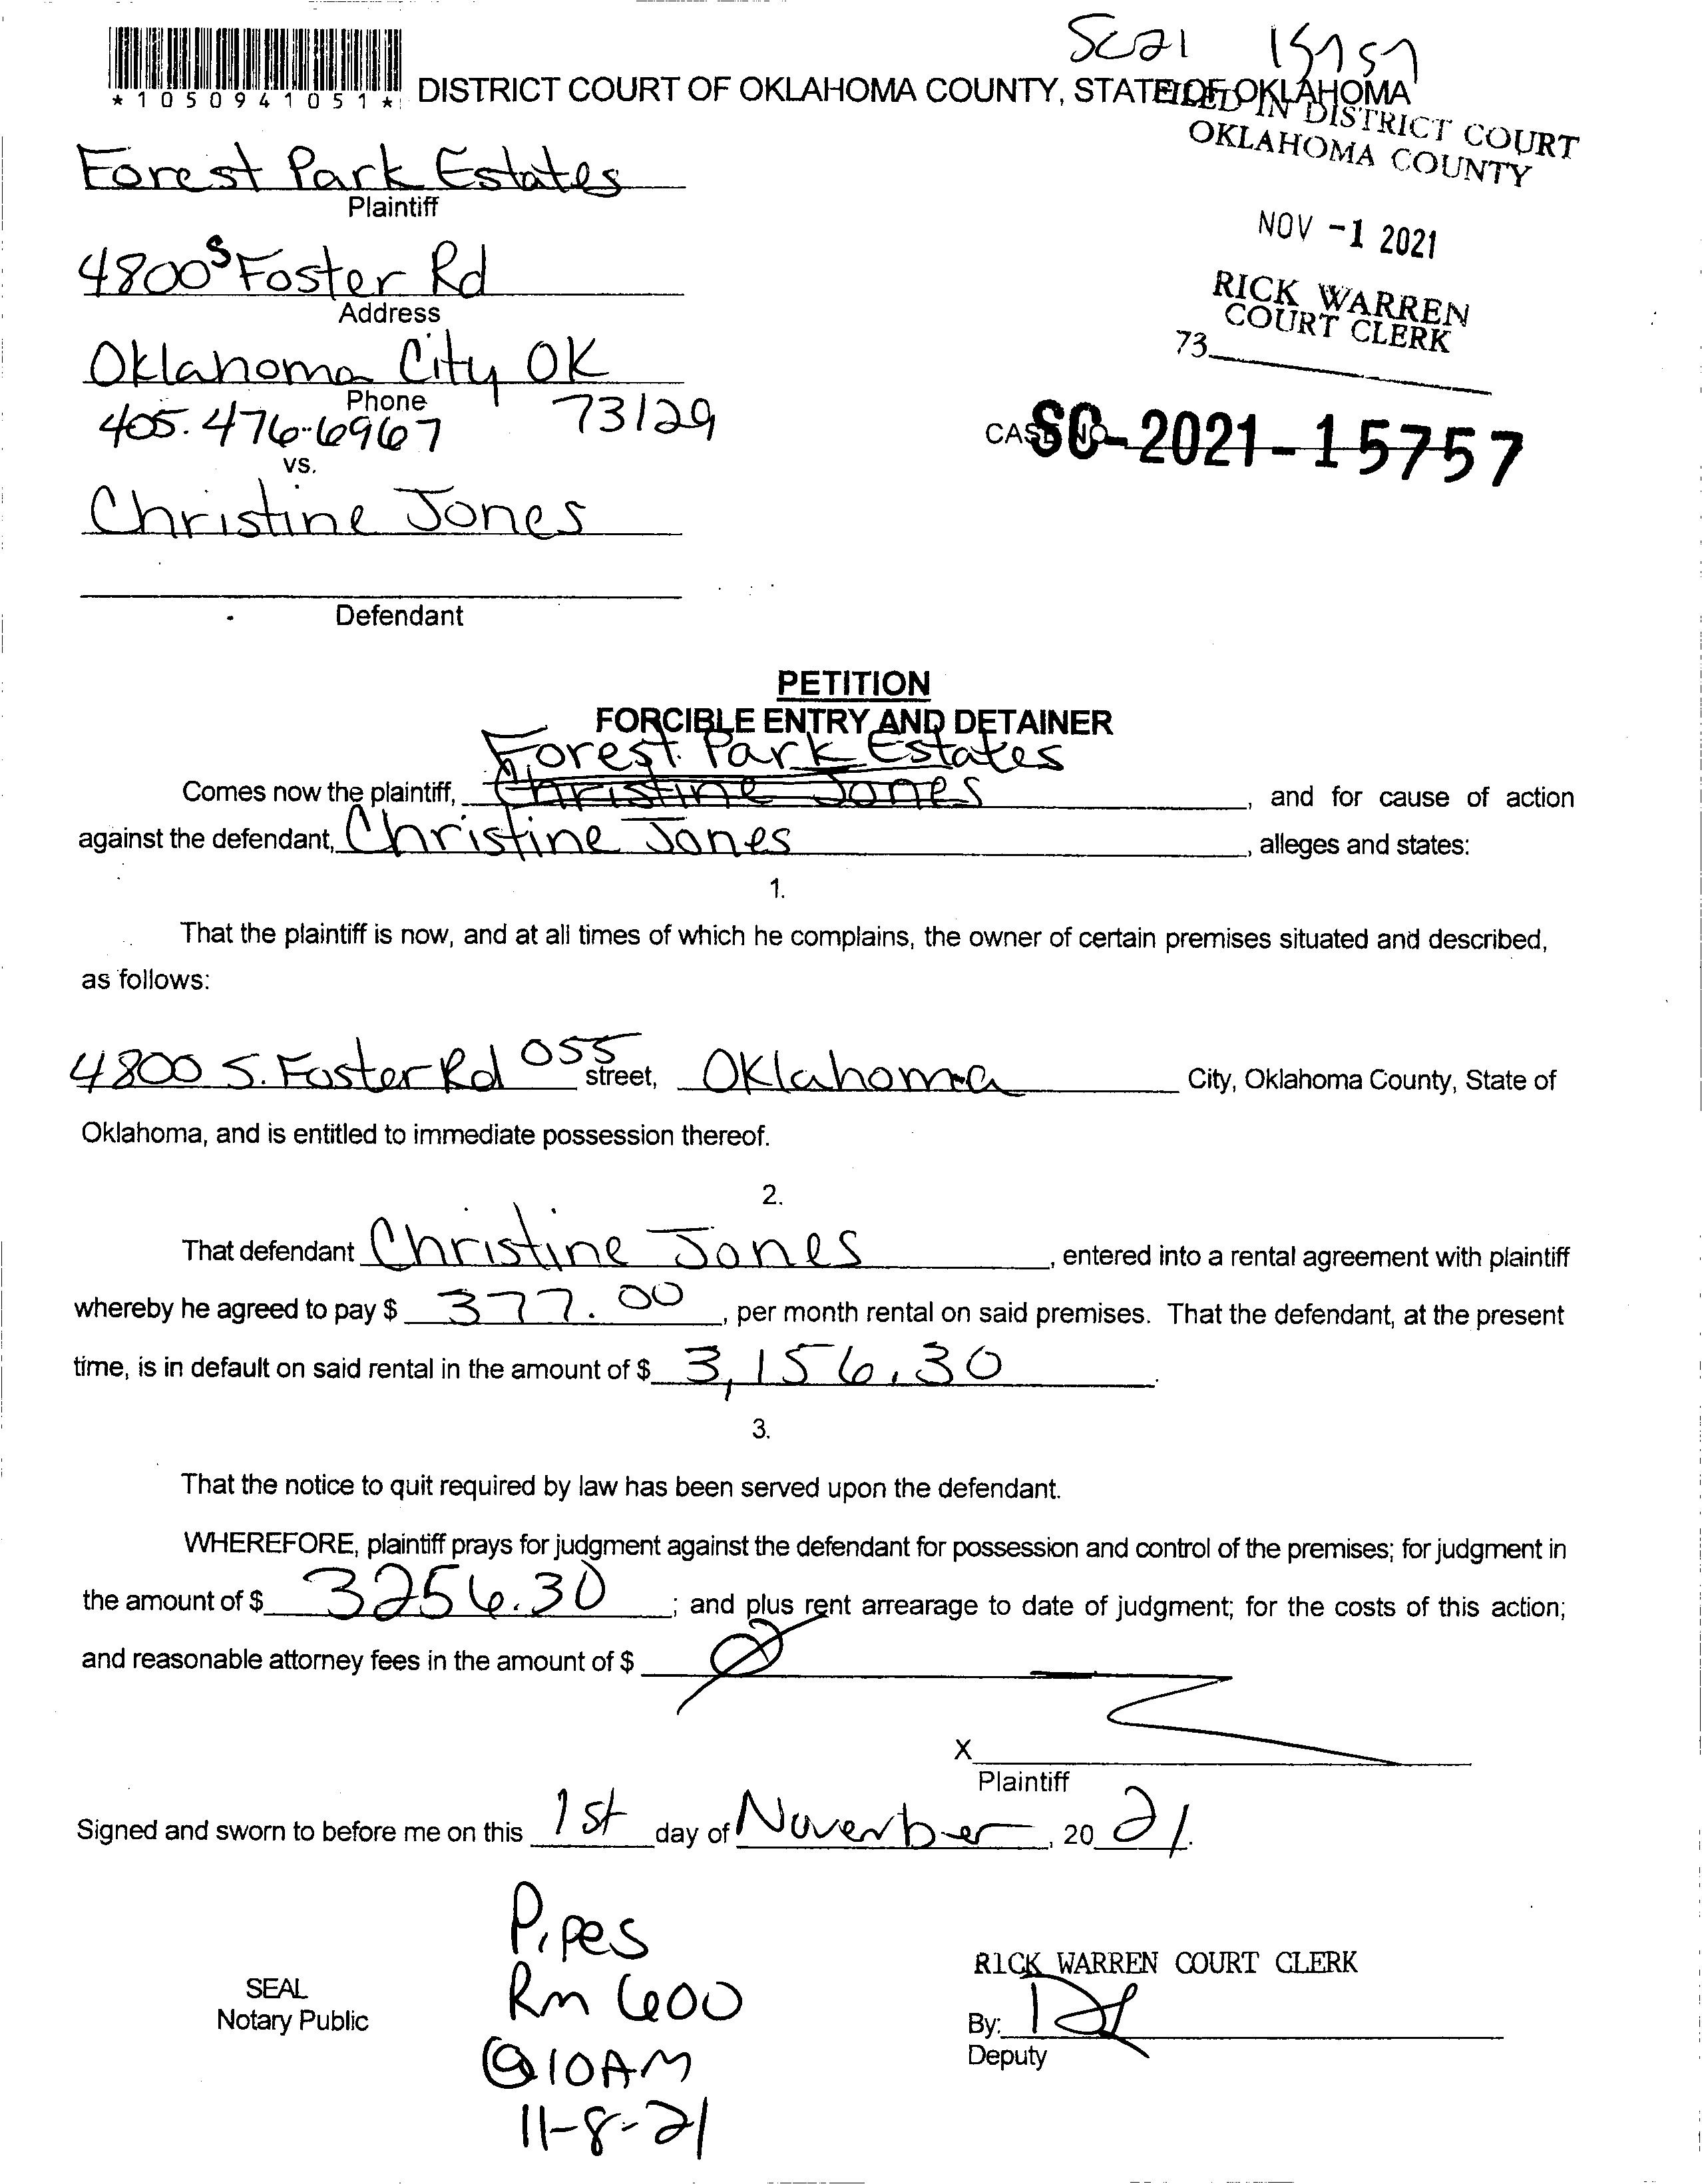 SC21 15757
*1050941051*
DISTRICT COURT OF OKLAHOMA COUNTY, STATE OF OKLAHOMA
FILED IN DISTRICT COURT
OKLAHOMA COUNTY
NOV -1 2021
RICK WARREN
COURT CLERK
73
Forest Park Estates
Plaintiff
4800 S Foster Rd
Address
Oklahoma City OK
Phone
405.476-6967 73129
CASE NO. SC-2021-15757
vs.
Christine Jones
Defendant
PETITION
FORCIBLE ENTRY AND DETAINER
Forest Park Estates
Comes now the plaintiff, Christine Jones, and for cause of action
against the defendant, Christine Jones, alleges and states:
1.
That the plaintiff is now, and at all times of which he complains, the owner of certain premises situated and described,
as follows:
4800 S. Foster Rd 055 street, Oklahoma City, Oklahoma County, State of
Oklahoma, and is entitled to immediate possession thereof.
2.
That defendant Christine Jones, entered into a rental agreement with plaintiff
whereby he agreed to pay $ 377.00, per month rental on said premises. That the defendant, at the present
time, is in default on said rental in the amount of $ 3,156.30.
3.
That the notice to quit required by law has been served upon the defendant.
WHEREFORE, plaintiff prays for judgment against the defendant for possession and control of the premises; for judgment in
the amount of $ 3256.30; and plus rent arrearage to date of judgment; for the costs of this action;
and reasonable attorney fees in the amount of $ 0
X
Plaintiff
Signed and sworn to before me on this 1st day of November, 20 21.
Pipes
Rm 600
@10AM
11-8-21
SEAL
Notary Public
RICK WARREN COURT CLERK
By:
Deputy